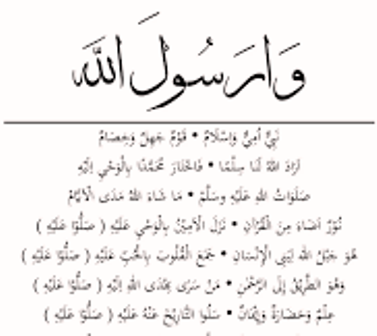 وَارَسُولَ اللهِ
نَبِيٌّ أُمِّيٌّ وَإِسْلَامٌ • قَوْمٌ جَهِلٌ وَخِصَامٌ
أَرَادَ اللهُ لَنَا سِلْمًا • فَاخْتَارَ مُحَمَّدًا بِالْوَحْيِ إِلَيْهِ
صَلَوَاتُ اللهِ عَلَيْهِ وَسَلَّمْ • مَا شَاءَ اللهُ مَدَى الْأَيَّامْ
نُوْرٌ أَضَاءَ مِنَ الْقُرْآنِ • نَزَلَ الْأَمِيْنُ بِالْوَحْيِ عَلَيْهِ ( صَلُّوْا عَلَيْهِ )
هُوَ حَبْلُ اللهِ لِبَنِي الْإِنْسَانِ • جَمَعَ الْقُلُوبَ بِالْحُبِّ عَلَيْهِ ( صَلُّوْا عَلَيْهِ )
وَهُوَ الطَّرِيْقُ إِلَى الرَّحْمٰنِ • مَنْ سَرَى بِهُدَى اللهِ إِلَيْهِ ( صَلُّوْا عَلَيْهِ )
عِلْمٌ وَحَضَارَةٌ وَإِيْمَانٌ • سَلُوا التَّارِيْخَ عَنْهُ عَلَيْهِ ( صَلُّوْا عَلَيْهِ )